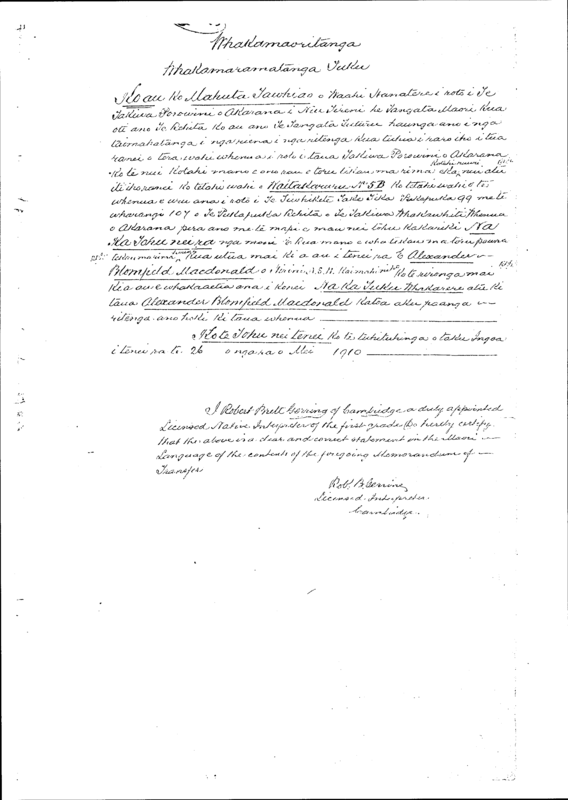 Whakamaoritanga
Whakamaramatanga Tuku
Ko au ko Mahuta Tawhiao o Waahi Hanatere i roto i Te
Takiwa Porowini o Akarana i Niu Tireni he Tangata Maori kua
oti ano Te Rehita ko au ano Te Tangata Tuturu haunga ano i nga
taimahatanga i nga riena i nga ritenga kua tuhia i raro iho i tua
ranei o tera wahi whenua i roto i taua Takiwa Porowini o Akarana
ko te nui kotahi mano e ono rau e toru tekau ma rima eka, neu atu
iti iho ranei ko tetahi wahi o Waitakaruru No 5B ko tetahi wahi o te
whenua e uru ana i roto i Te Tiwhikete Take Tika Pukapuka 99 me te
wharangi 107 o Te Pukapuka Rehita o Te Takiwa Whakawhiti Whenua
o Akarana pera ano me te mapi e mau nei tohu Kakariki Na
Ka Tohu nei ra nga moni E rua mano e wha tekau ma toru pauna
kua utua mai ki a au i tenei ra E Alexander
Blomfield Macdonald o Niu Kaimahi Ko te riringa mai
ki a au e whakaaetia ana i konei Na Ka Tuku Whakarere atu ki
taua Alexander Blomfield Macdonald katoa aku paanga
ritenga ano hoki ki taua whenua
Ko te Tohu nei tenei ko te tuhituhinga o taku Ingoa
i tenei ra te 26 o nga ra o Mei 1910
I Robert Brett Gerring of Cambridge a duly appointed
Licensed Native Interpreter of the first grade Do hereby certify
that the above is a clear and correct statement in the Maori
Language of the contents of the foregoing Memorandum of
Transfer
Robt. B. Gerring
Licensed Interpreter
Cambridge.